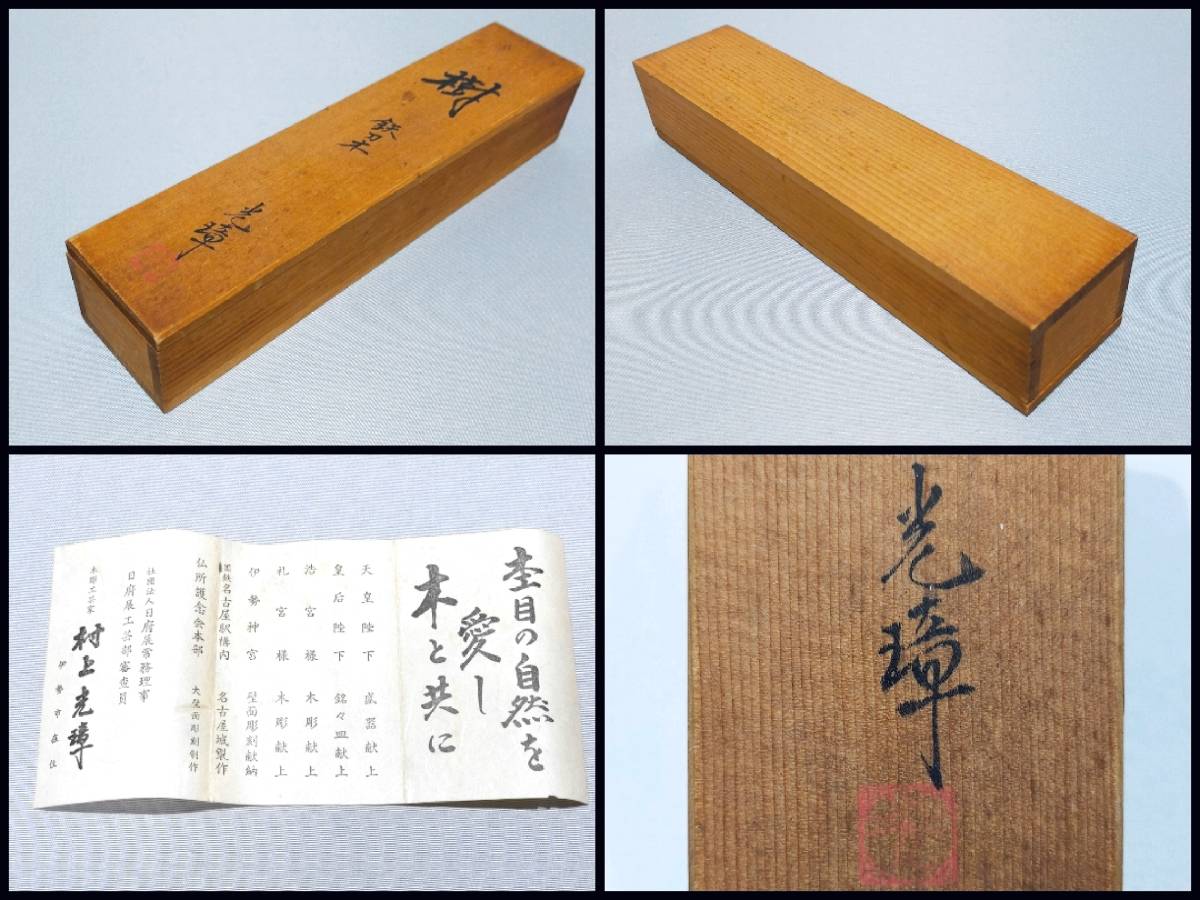 樹
鉄刀木
光璋
杢目の自然を
愛し
木と共に
天皇陛下 盛器献上
皇后陛下 銘々皿献上
浩宮様 木彫献上
礼宮様 木彫献上
伊勢神宮 壁面彫刻献納
国鉄名古屋駅構内 名古屋城製作
仏所護念会本部 大壁面彫刻制作
社団法人日府展常務理事
日府展工芸部審査員
木彫工芸家 村上光璋
伊勢市在住
光璋